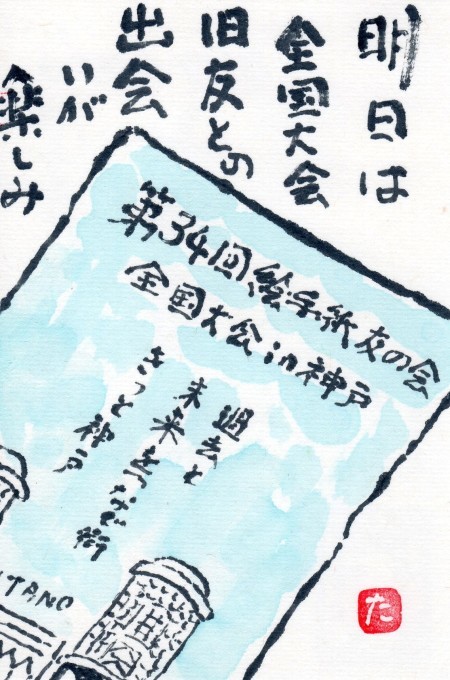 明日は
全国大会
旧友との
出会
いが
楽しみ
第34回絵手紙友の会
全国大会in神戸
過去と
未来をつなぐ街
きっと神戸
ITANO
た